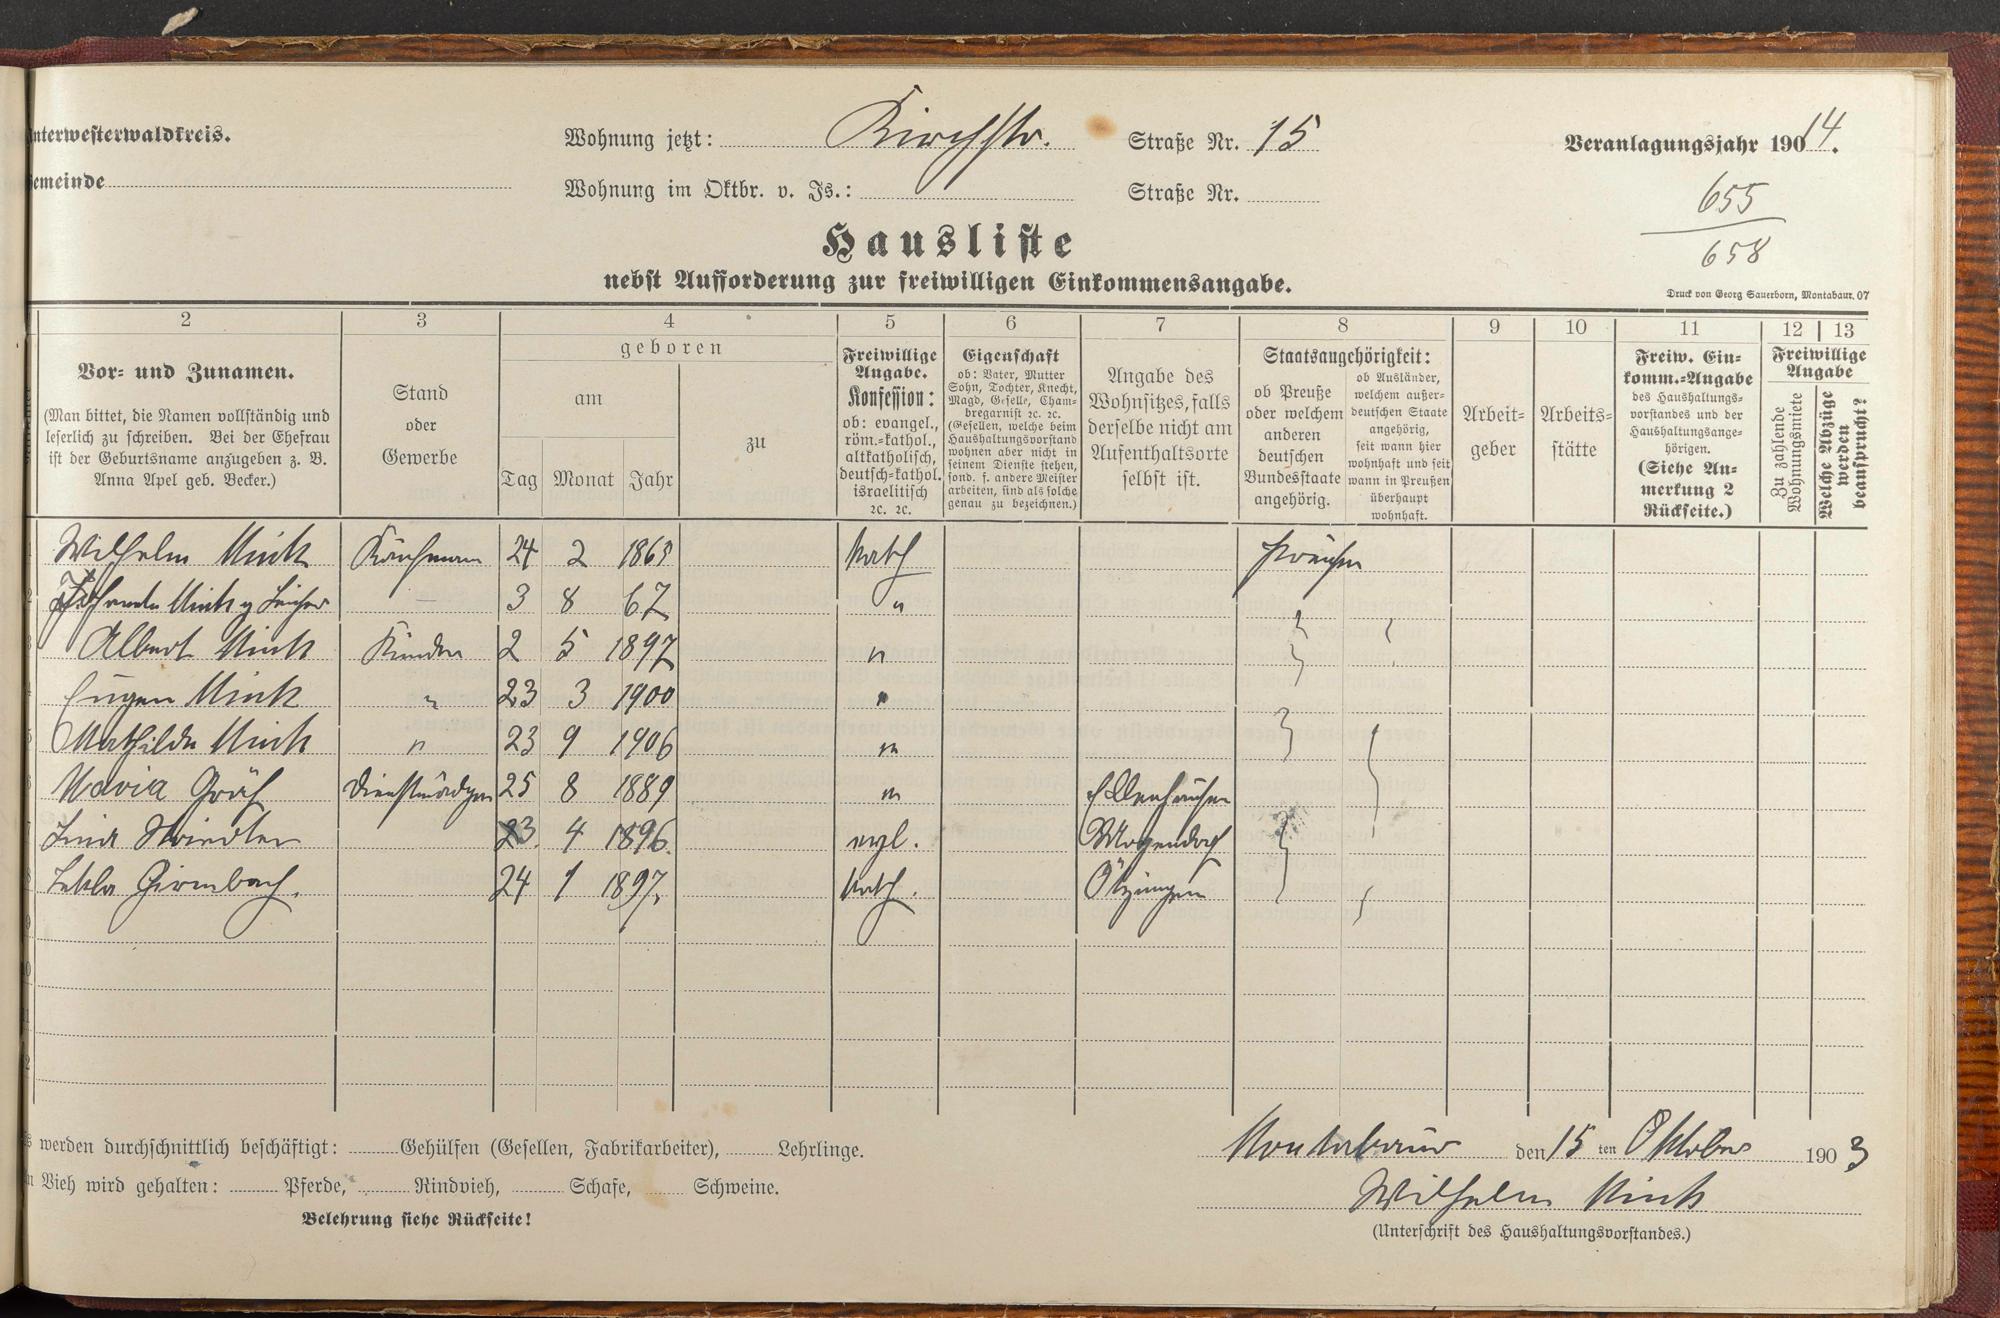 nterwesterwaldkreis.
Wohnung jetzt: Kirchstr. Straße Nr. 15
Veranlagungsjahr 190 14.
emeinde
Wohnung im Oktbr. v. Js.: Straße Nr.
655
658
Hausliste
nebst Aufforderung zur freiwilligen Einkommensangabe.
Druck von Georg Sauerborn, Montabaur. 07
2 3 4 5 6 7 8 9 10 11 12 13
Vor- und Zunamen.
(Man bittet, die Namen vollständig und
leserlich zu schreiben. Bei der Ehefrau
ist der Geburtsname anzugeben z. B.
Anna Apel geb. Becker.)
Stand
oder
Gewerbe
geboren
am
Tag Monat Jahr
zu
Freiwillige
Angabe.
Konfession:
ob: evangel.,
röm.-kathol.,
altkatholisch,
deutsch-kathol.
israelitisch
ꝛc. ꝛc.
Eigenschaft
ob: Vater, Mutter
Sohn, Tochter, Knecht,
Magd, Geselle, Cham-
bregarnist ꝛc. ꝛc.
(Gesellen, welche beim
Haushaltungsvorstand
wohnen aber nicht in
seinem Dienste stehen,
sond. f. andere Meister
arbeiten, sind als solche
genau zu bezeichnen.)
Angabe des
Wohnsitzes, falls
derselbe nicht am
Aufenthaltsorte
selbst ist.
Staatsangehörigkeit:
ob Preuße
oder welchem
anderen
deutschen
Bundesstaate
angehörig.
ob Ausländer,
welchem außer-
deutschen Staate
angehörig,
seit wann hier
wohnhaft und seit
wann in Preußen
überhaupt
wohnhaft.
Arbeit-
geber
Arbeits-
stätte
Freiw. Ein-
komm.-Angabe
des Haushaltungs-
vorstandes und der
Haushaltungsange-
hörigen.
(Siehe An-
merkung 2
Rückseite.)
Freiwillige
Angabe
Zu zahlende
Wohnungsmiete
Welche Abzüge
werden
beansprucht?
Wilhelm Mink Kaufmann 24 2 1865 kath Preußen
Mink 3 8 67 "
Albert Mink Kinder 2 5 1897 "
Eugen Mink " 23 3 1900 "
Mathilde Mink " 23 9 1906 "
Maria Gräf Dienstmädgen 25 8 1889 " Ellenhausen
Lina 23. 4 1896. evgl. Mogendorf
Tekla Girmbach. 24 1 1897. kath. Ötzingen
s werden durchschnittlich beschäftigt: Gehülfen (Gesellen, Fabrikarbeiter), Lehrlinge.
Montabaur den 15 ten Oktober 190 3
n Vieh wird gehalten: Pferde, Rindvieh, Schafe, Schweine.
Wilhelm Mink
Belehrung siehe Rückseite!
(Unterschrift des Haushaltungsvorstandes.)